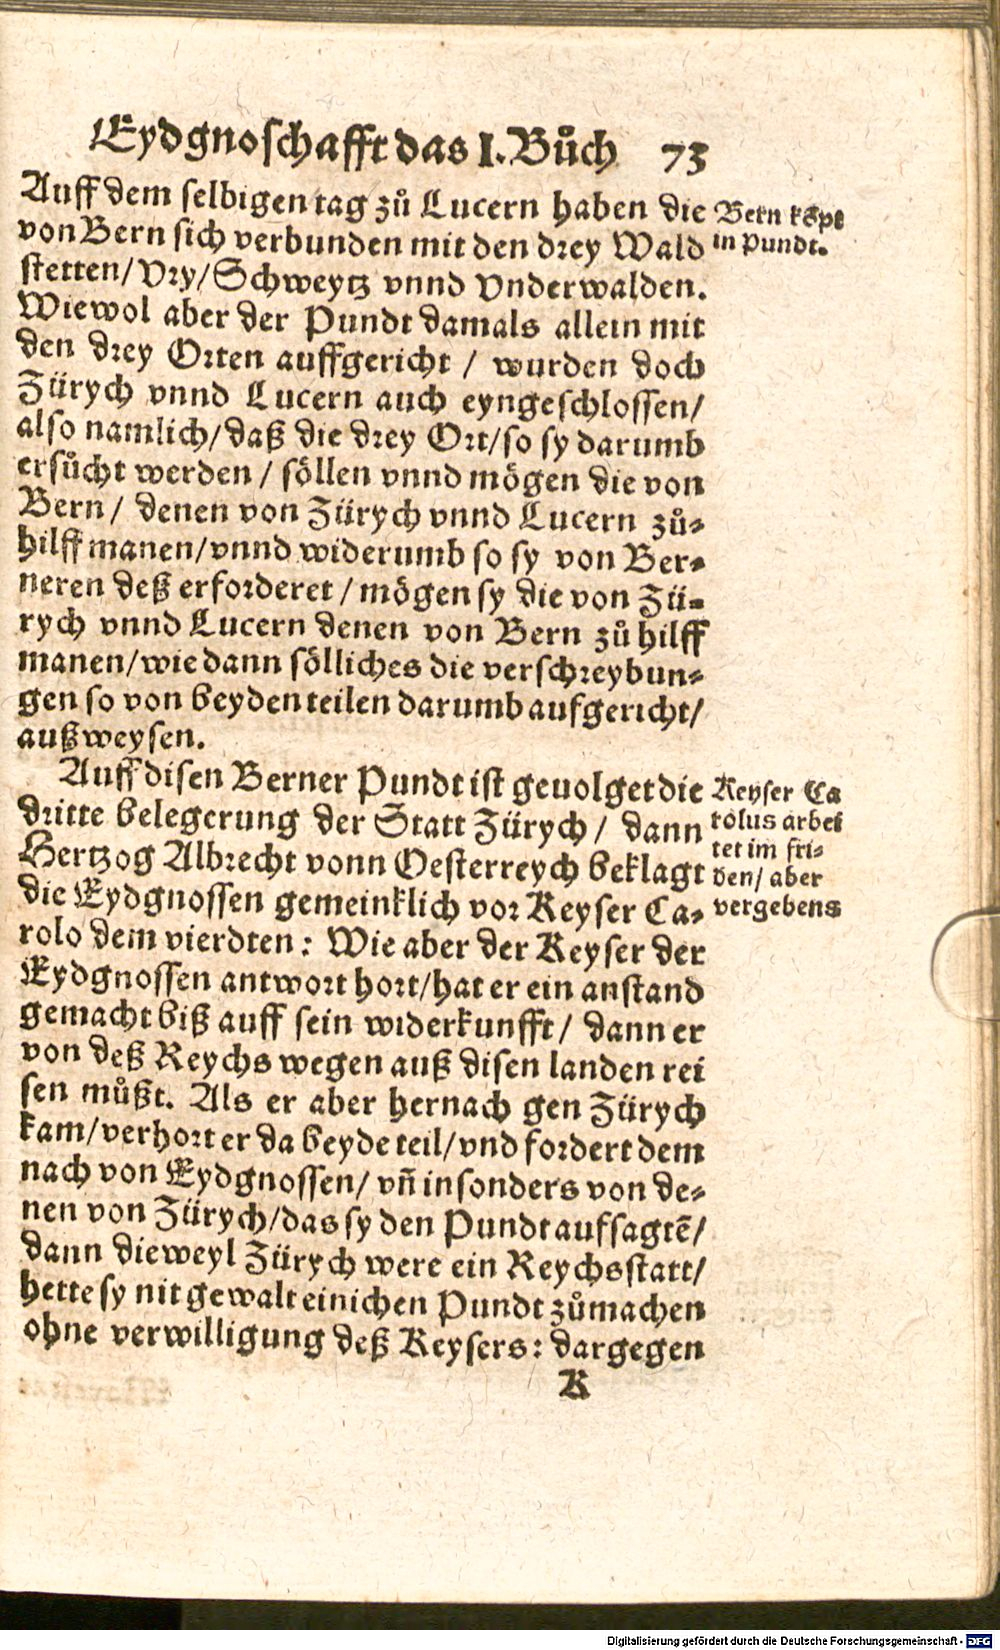 Eydgnoschafft das I. Bůch 73
Auff dem selbigen tag zů Lucern haben die
von Bern sich verbunden mit den drey Wald
stetten/ Vry/ Schweytz vnnd Vnderwalden.
Wiewol aber der Pundt damals allein mit
den drey Orten auffgericht / wurden doch
Zürych vnnd Lucern auch eyngeschlossen/
also namlich/ daß die drey Ort/ so sy darumb
ersůcht werden / söllen vnnd mögen die von
Bern/ denen von Zürych vnnd Lucern zů⸗
hilff manen/ vnnd widerumb so sy von Ber⸗
neren deß erforderet / mögen sy die von Zü⸗
rych vnnd Lucern denen von Bern zů hilff
manen/ wie dann sölliches die verschreybun⸗
gen so von beyden teilen darumb aufgericht/
außweysen.
Bern
in Pundt.
Auff disen Berner Pundt ist geuolget die
dritte belegerung der Statt Zürych/ dann
Hertzog Albrecht vonn Oesterreych beklagt
die Eydgnossen gemeinklich vor Keyser Ca⸗
rolo dem vierdten: Wie aber der Keyser der
Eydgnossen antwort hort/ hat er ein anstand
gemacht biß auff sein widerkunfft/ dann er
von deß Reychs wegen auß disen landen rei
sen můßt. Als er aber hernach gen Zürych
kam/ verhort er da beyde teil/ vnd fordert dem
nach von Eydgnossen/ vñ insonders von de⸗
nen von Zürych/ das sy den Pundt aufsagtē/
dann dieweyl Zürych were ein Reychsstatt/
hette sy nit gewalt einichen Pundt zůmachen
ohne verwilligung deß Keysers: dargegen
Keyser Ca
rolus arbei
tet im fri⸗
den/ aber
vergebens
K
Digitalisierung gefördert durch die Deutsche Forschungsgemeinschaft - DFG